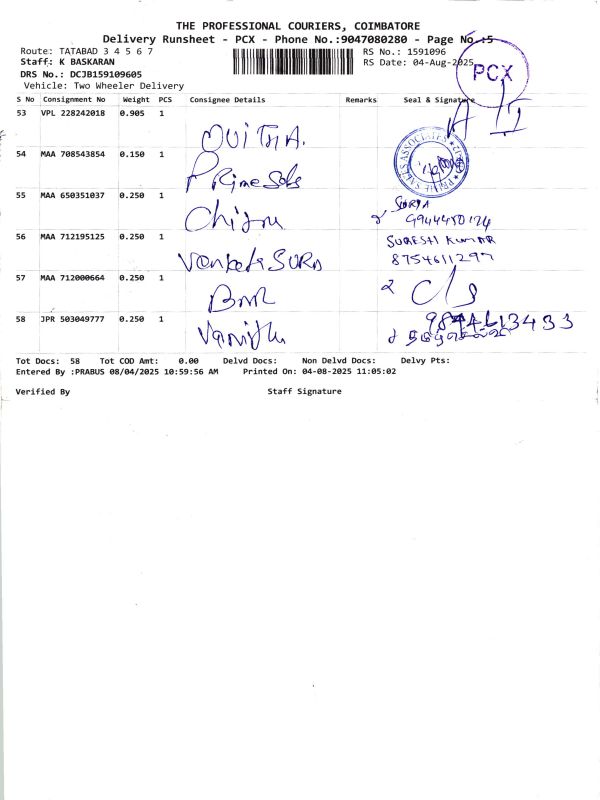 THE PROFESSIONAL COURIERS, COIMBATORE
Delivery Runsheet - PCX - Phone No.:9047080280 - Page No.:5
Route: TATABAD 3 4 5 6 7
RS No.: 1591096
Staff: K BASKARAN
RS Date: 04-Aug-2025
PCX
DRS No.: DCJB159109605
Vehicle: Two Wheeler Delivery
S No Consignment No Weight PCS Consignee Details Remarks Seal & Signature
53 VPL 228242018 0.905 1
54 MAA 708543854 0.150 1 Prime Sals
PRIME SALES ASSOCIATES
55 MAA 650351037 0.250 1 Chitru SURYA
9944450174
56 MAA 712195125 0.250 1 Venkata SURA SURESH KUMAR
8754611297
57 MAA 712000664 0.250 1
58 JPR 503049777 0.250 1 Vanitha 9844613433
Tot Docs: 58 Tot COD Amt: 0.00 Delvd Docs: Non Delvd Docs: Delvy Pts:
Entered By :PRABUS 08/04/2025 10:59:56 AM Printed On: 04-08-2025 11:05:02
Verified By Staff Signature